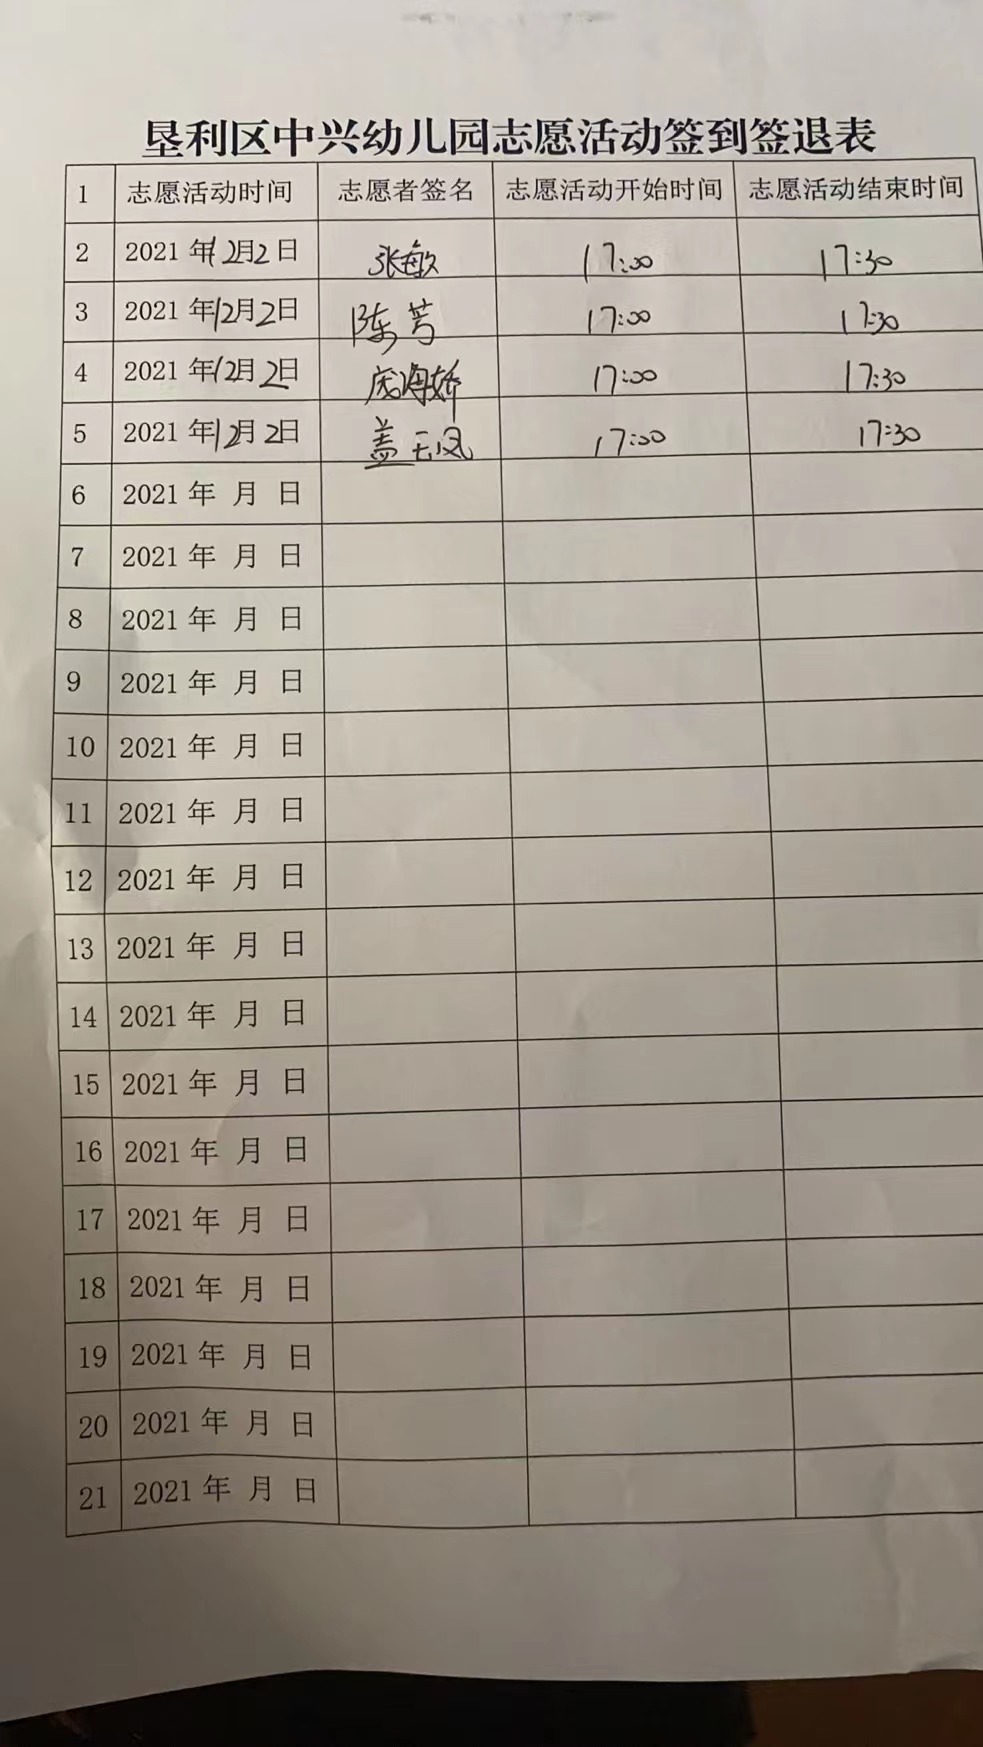 垦利区中兴幼儿园志愿活动签到签退表
1 志愿活动时间 志愿者签名 志愿活动开始时间 志愿活动结束时间
2 2021年12月2日 张敏 17:00 17:30
3 2021年12月2日 陈芳 17:00 17:30
4 2021年12月2日 庞海娇 17:00 17:30
5 2021年12月2日 盖玉凤 17:00 17:30
6 2021年 月 日
7 2021年 月 日
8 2021年 月 日
9 2021年 月 日
10 2021年 月 日
11 2021年 月 日
12 2021年 月 日
13 2021年 月 日
14 2021年 月 日
15 2021年 月 日
16 2021年 月 日
17 2021年 月 日
18 2021年 月 日
19 2021年 月 日
20 2021年 月 日
21 2021年 月 日